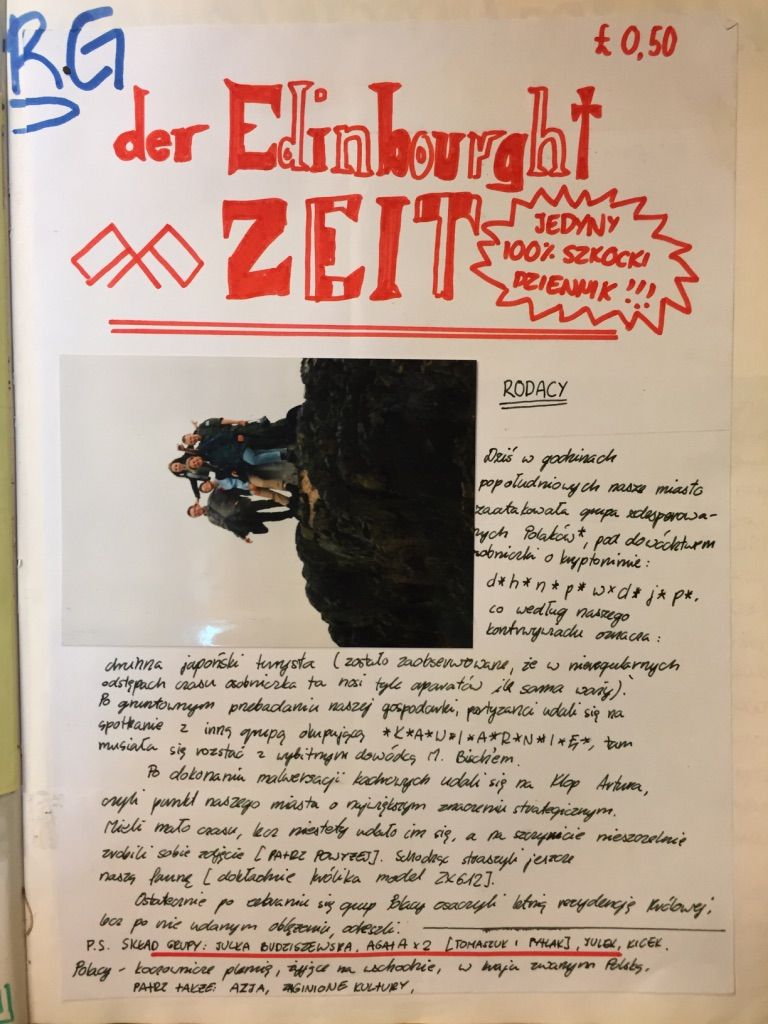 RG
£ 0,50
der Edinbourght
ZEIT
JEDYNY
100% SZKOCKI
DZIENNIK !!!
RODACY
Dziś w godzinach
popołudniowych nasze miasto
zaatakowała grupa zdesperowa-
nych Polaków*, pod dowództwem
osobniczki o kryptonimie:
d*h*n*p*w*d*j*p*,
co według naszego
kontrwywiadu oznacza:
druhna japoński turysta (zostało zaobserwowane, że w nieregularnych
odstępach czasu osobniczka ta nosi tyle aparatów ile sama waży).
Po gruntownym przebadaniu naszej gospodarki, partyzanci udali się na
spotkanie z inną grupą okupującą *K*A*W*I*A*R*N*I*Ę*, tam
musiała się rozstać z wybitnym dowódcą M.
Po dokonaniu malwersacji kadrowych udali się na Kłop Artura,
czyli punkt naszego miasta o największym znaczeniu strategicznym.
Mieli mało czasu, lecz niestety udało im się, a na szczycie nieszczelnie
zrobili sobie zdjęcie [PATRZ POWYŻEJ]. Schodząc straszyli jeszcze
naszą faunę [dokładnie królika model ZX612].
Ostatecznie po zebraniu się grup Polacy osaczyli letnią rezydencję Królowej,
lecz po nie udanym oblężeniu, odeszli.
P.S. SKŁAD GRUPY: JULKA BUDZISZEWSKA, AGATA x2 [TOMASZUK I PYŁAK], JULEK, KICEK.
Polacy - koczownicze plemię, żyjące na wschodzie, w kraju zwanym Polską,
PATRZ TAKŻE: AZJA, ZAGINIONE KULTURY,